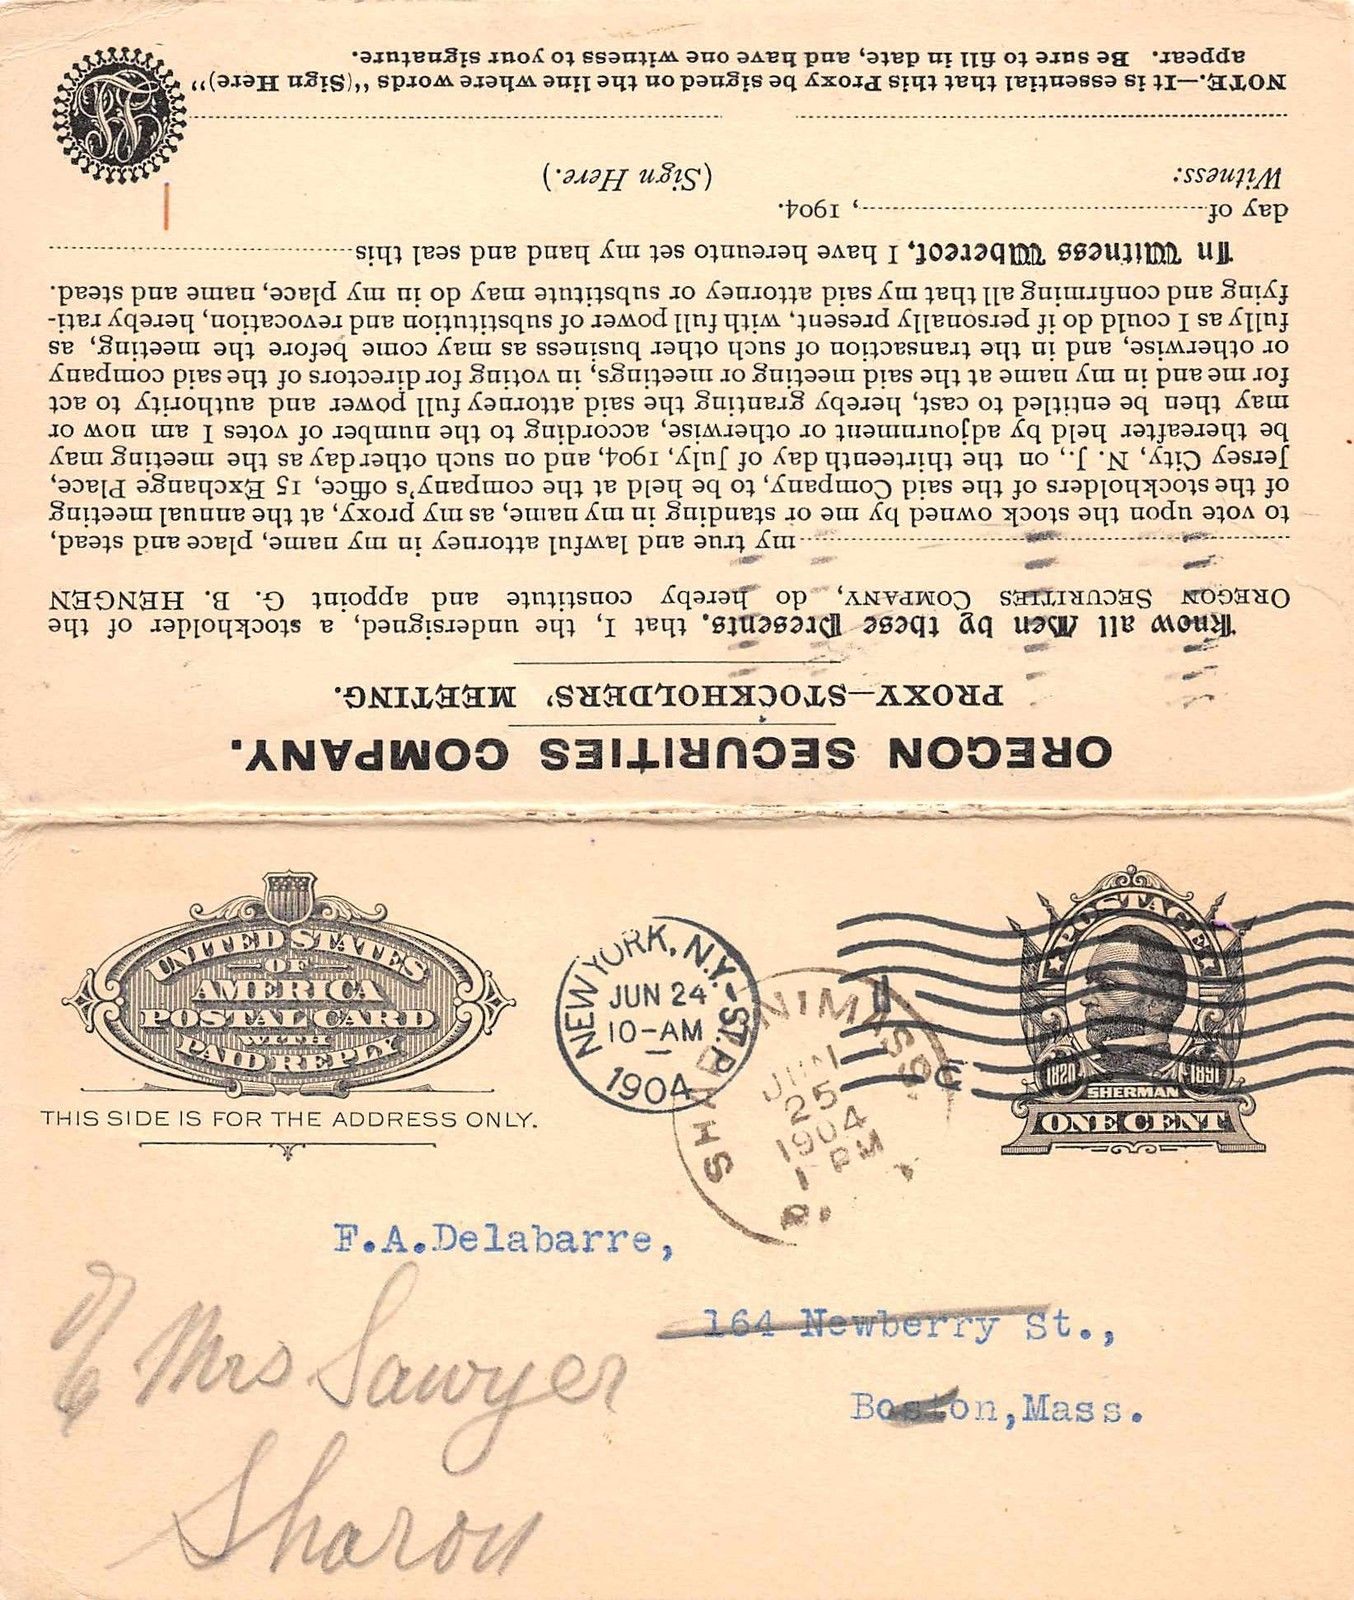 OREGON SECURITIES COMPANY.
PROXY—STOCKHOLDERS' MEETING.
Know all Men by these Presents, that I, the undersigned, a stockholder of the
OREGON SECURITIES COMPANY, do hereby constitute and appoint G. B. HENGEN
my true and lawful attorney in my name, place and stead,
to vote upon the stock owned by me or standing in my name, as my proxy, at the annual meeting
of the stockholders of the said Company, to be held at the company's office, 15 Exchange Place,
Jersey City, N. J., on the thirteenth day of July, 1904, and on such other day as the meeting may
be thereafter held by adjournment or otherwise, according to the number of votes I am now or
may then be entitled to cast, hereby granting the said attorney full power and authority to act
for me and in my name at the said meeting or meetings, in voting for directors of the said company
or otherwise, and in the transaction of such other business as may come before the meeting, as
fully as I could do if personally present, with full power of substitution and revocation, hereby rati-
fying and confirming all that my said attorney or substitute may do in my place, name and stead.
In Witness Whereof, I have hereunto set my hand and seal this
day of , 1904.
Witness: (Sign Here.)
NOTE.—It is essential that this Proxy be signed on the line where words "(Sign Here)"
appear. Be sure to fill in date, and have one witness to your signature.
UNITED STATES
OF
AMERICA
POSTAL CARD
WITH
PAID REPLY
THIS SIDE IS FOR THE ADDRESS ONLY.
NEW YORK, N.Y.-ST. P
JUN 24
10-AM
1904
JUN
25
1904
1 PM
POSTAGE
1820 1891
SHERMAN
ONE CENT
F.A.Delabarre,
164 Newberry St.,
Boston,Mass.
c/o Mrs Sawyer
Sharon